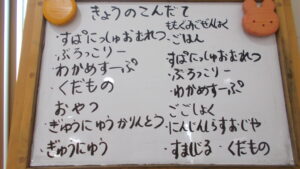 きょうのこんだて
・すぱにっしゅおむれつ
・ぶろっこりー
・わかめすーぷ
・くだもの
おやつ
・ぎゅうにゅうかりんとう
・ぎゅうにゅう
・ごはん
すぱにっしゅおむれつ
・ぶろっこりー
・わかめすーぷ
ごごしょく
・にんじんしらすおじや
・すましじる ・くだもの